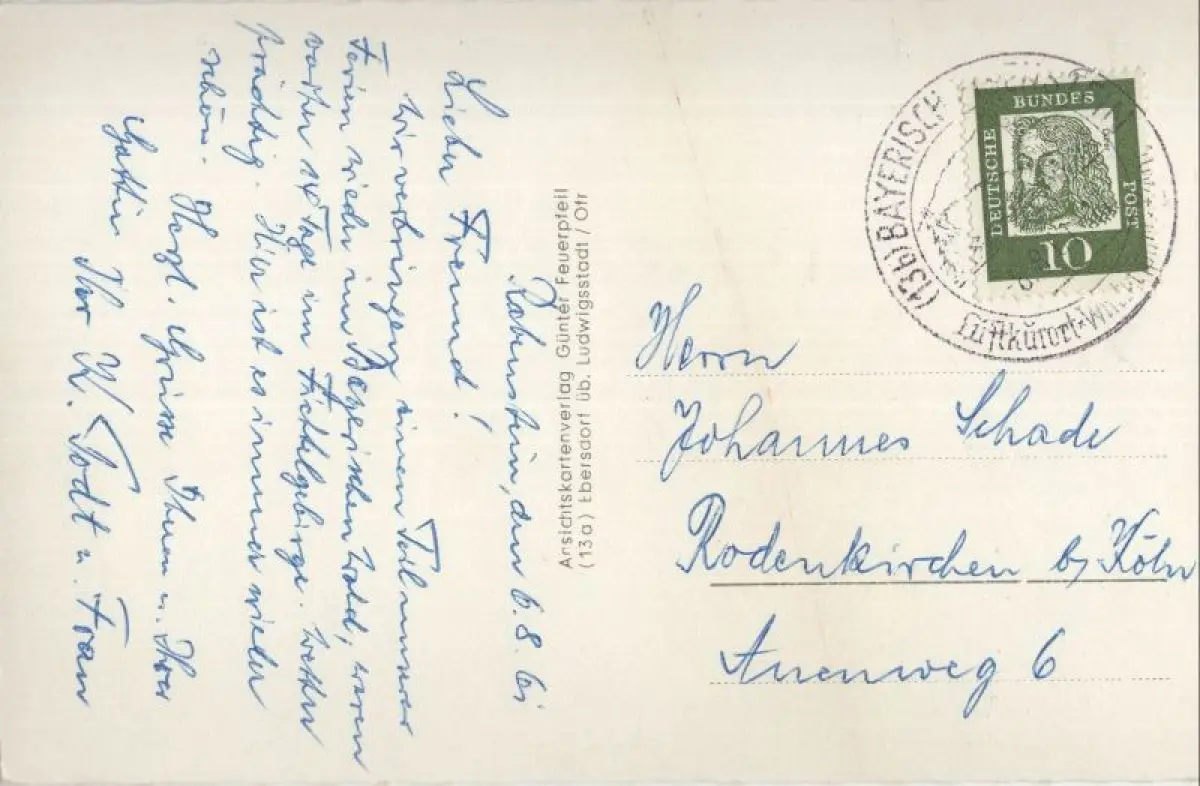 Rabenstein, den 6.8.61
Lieber Freund!
Wir verbringen einen Teil unserer
Ferien wieder im Bayerischen Wald, waren
vorher 14 Tage im Fichtelgebirge. Wetter
prächtig. Hier ist es immer wieder
schön.
Herzl. Grüsse Ihnen u. Ihrer
Gattin Ihr K. Todt u. Frau
Ansichtskartenverlag Günter Feuerpfeil
(13a) Ebersdorf üb. Ludwigsstadt / Ofr
(13b) BAYERISCH
Luftkurort
DEUTSCHE
BUNDES
POST
10
Herrn
Johannes Schade
Rodenkirchen b/ Köln
Auenweg 6